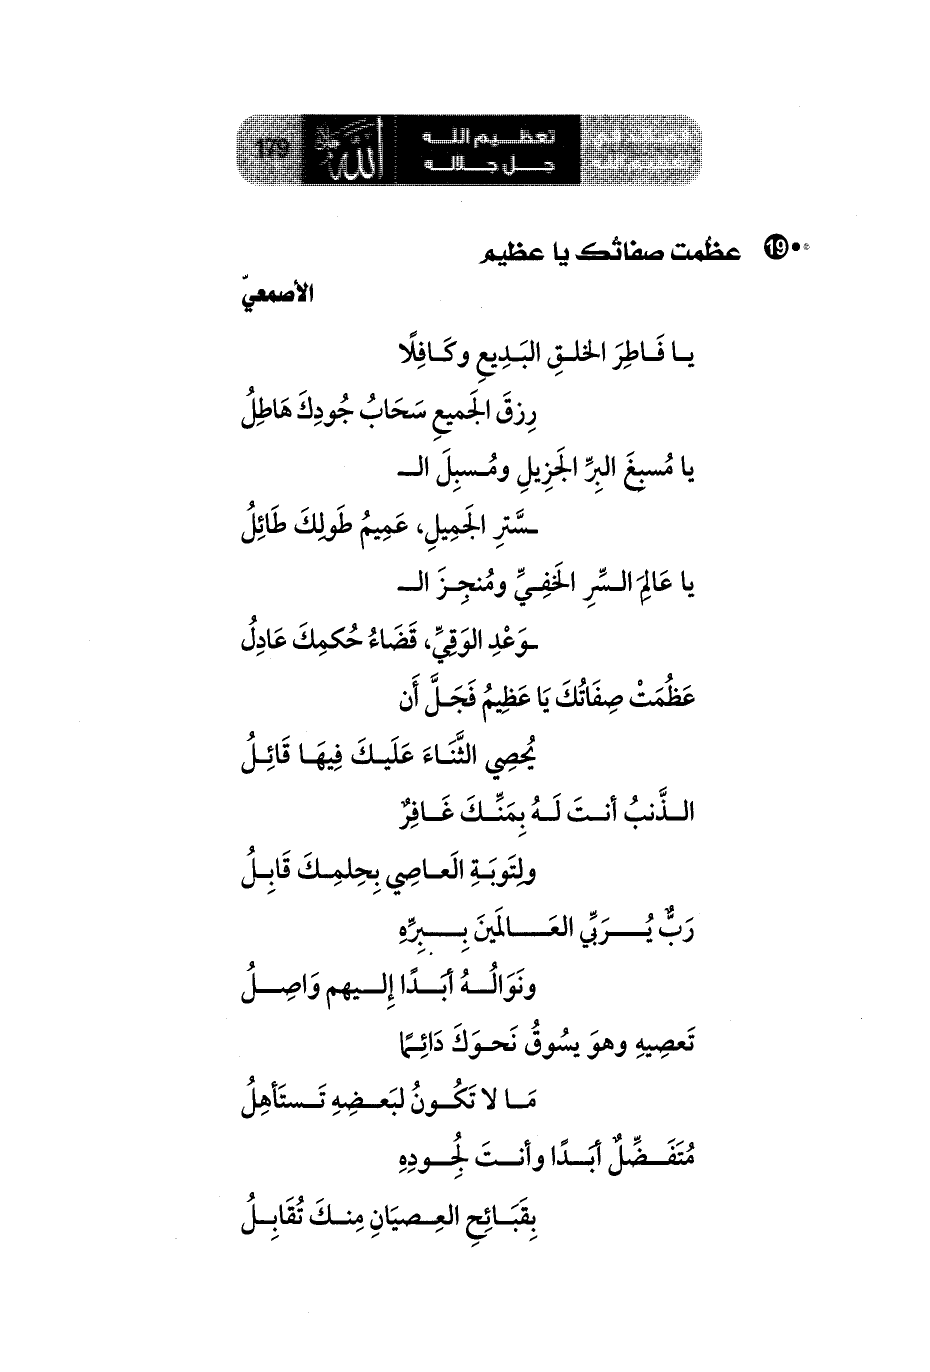 تعظيم الله
جل جلاله
الله
179
19 عظُمت صفاتُك يا عظيم
الأصمعيّ
يا فَاطِرَ الخلقِ البَدِيعِ وكَافِلًا
رِزقَ الجَميعِ سَحَابُ جُودِكَ هَاطِلُ
يا مُسبِغَ البِرِّ الجَزِيلِ ومُسبِلَ الـ
ـسَّترِ الجَمِيلِ، عَمِيمُ طَولِكَ طَائِلُ
يا عَالِمَ السِّرِ الخَفِيِّ ومُنجِزَ الـ
ـوَعْدِ الوَقِيِّ، قَضَاءُ حُكمِكَ عَادِلُ
عَظُمَتْ صِفَاتُكَ يَا عَظِيمُ فَجَلَّ أَن
يُحصِي الثَّنَاءَ عَلَيكَ فِيهَا قَائِلُ
الذَّنبُ أنتَ لَهُ بِمَنِّكَ غَافِرٌ
ولِتَوبَةِ العَاصِي بِحِلمِكَ قَابِلُ
رَبٌّ يُرَبِّي العَالَمِينَ بِبِرِّهِ
ونَوَالُهُ أبَدًا إِليهم وَاصِلُ
تَعصِيهِ وهوَ يسُوقُ نَحوَكَ دَائِمًا
مَا لا تَكُونُ لبَعضِهِ تَستَأهِلُ
مُتَفَضِّلٌ أبَدًا وأنتَ لجُودِهِ
بِقَبَائحِ العِصيَانِ مِنكَ تُقَابِلُ